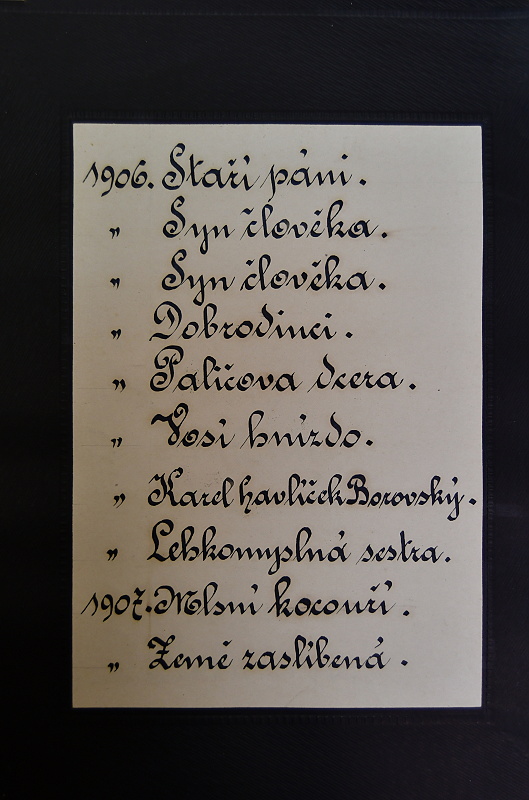 1906. Staří páni.
„ Syn člověka.
„ Syn člověka.
„ Dobrodinci.
„ Paličova dcera.
„ Vosí hnízdo.
„ Karel Havlíček Borovský.
„ Lehkomyslná sestra.
1907. Mlsní kocouři.
„ Země zaslíbená.